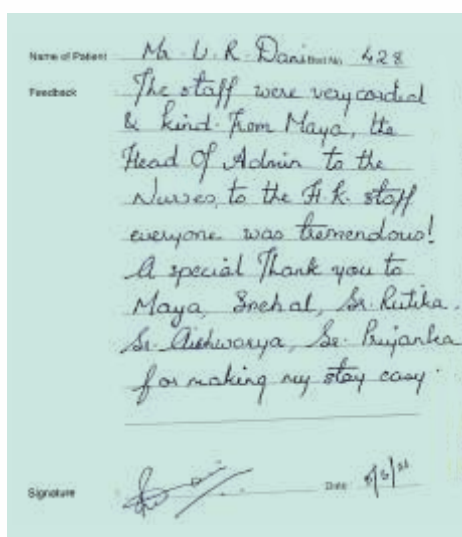 Name of Patient Mr U. R. Dani Bed No. 428
Feedback The staff were very cordial
& kind. From Maya, the
Head Of Admin to the
Nurses, to the H.K. staff
everyone was tremendous!
A special Thank you to
Maya, Snehal, Sr. Rutika,
Sr. Aishwarya, Sr. Priyanka
for making my stay easy.
Signature Date